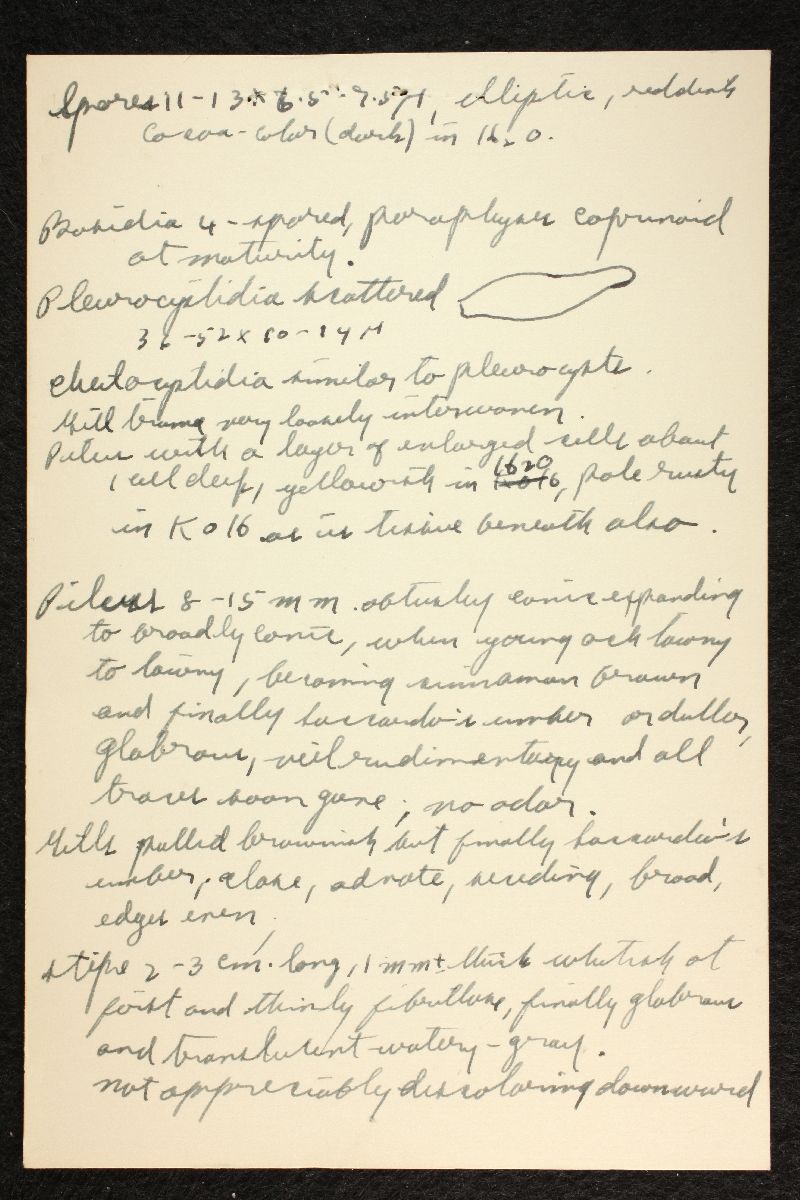 Spores 11-13 x 6.5-7.5 μ, elliptic, reddish
cocoa-color (dark) in H2O.
Basidia 4-spored, paraphyses coprinoid
at maturity.
Pleurocystidia scattered
36-52 x 10-14 μ
Cheilocystidia similar to pleurocysts.
Gill trama very loosely interwoven.
Pileus with a layer of enlarged cells about
1 cell deep, yellowish in H2O, pale rusty
in KOH as is tissue beneath also.
Pileus 8-15 mm. obtusely conic expanding
to broadly conic, when young och tawny
to tawny, becoming cinnamon brown
and finally saccardo's umber or duller,
glabrous, veil rudimentary and all
traces soon gone, no odor.
Gills pallid brownish but finally saccardo's
umber, close, adnate, seceding, broad,
edges even,
stipe 2-3 cm. long, 1 mm± thick whitish at
first and thinly fibrillose, finally glabrous
and translucent watery-gray.
not appreciably discoloring downward